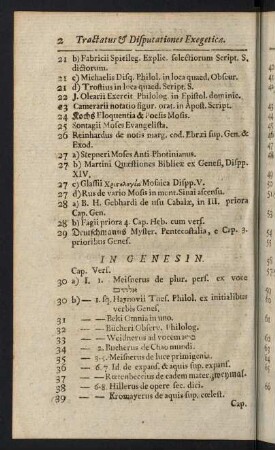 2 Tractatus & Disputationes Exegeticæ.
21 b) Fabricii Spicileg. Explic. selectiorum Script. S.
dictorum.
21 c) Michaelis Disq. Philol. in loca quæd. Obscur.
21 d) Trostius in loca quæd. Script. S.
22 J. Olearii Exercit. Philolog. in Epistol. dominic.
23 Camerarii notatio figur. orat. in Apost. Script.
24 Kochs Eloquentia & Poesis Mosis.
25 Sontagii Moses Evangelista.
26 Reinhardus de notis marg. cod. Ebræi sup. Gen. &
Exod.
27 a) Stepneri Moses Anti Photinianus.
27 b) Martini Quæstiones Biblicæ ex Genesi, Dispp.
XIV.
27 c) Glassii Mosaica Dispp. V.
27 d) Rus de vario Mosis in mont. Sinai ascensu.
28 a) B. H. Gebhardi de usu Cabalæ, in III. priora
Cap. Gen.
28 b) Fagii priora 4. Cap. Heb. cum vers.
29 Deutschmanns Myster. Pentecostalia, e Cap. 3.
prioribus Genes.
IN GENESIN.
Cap. Vers.
30 a) I. 1. Meisnerus de plur. pers. ex voce
אלהים
30 b) — 1. sq. Haynovii Thes. Philol. ex initialibus
verbis Genes.
31 — — Bekii Omnia in uno.
32 — — Bücheri Observ. Philolog.
33 — — Weithnerus ad vocem ברא
34 — 2. Bucherus de Chao mundi.
35 — 3-5. Meisnerus de luce primigenia.
36 — — Id. de expans. & aquis sup. expans.
37 — — Rottenbeccius de eadem mater.
38 — 6-8. Hillerus de opere sec. dici.
39 — — Kromayerus de aquis sup. cœlest.
Cap.